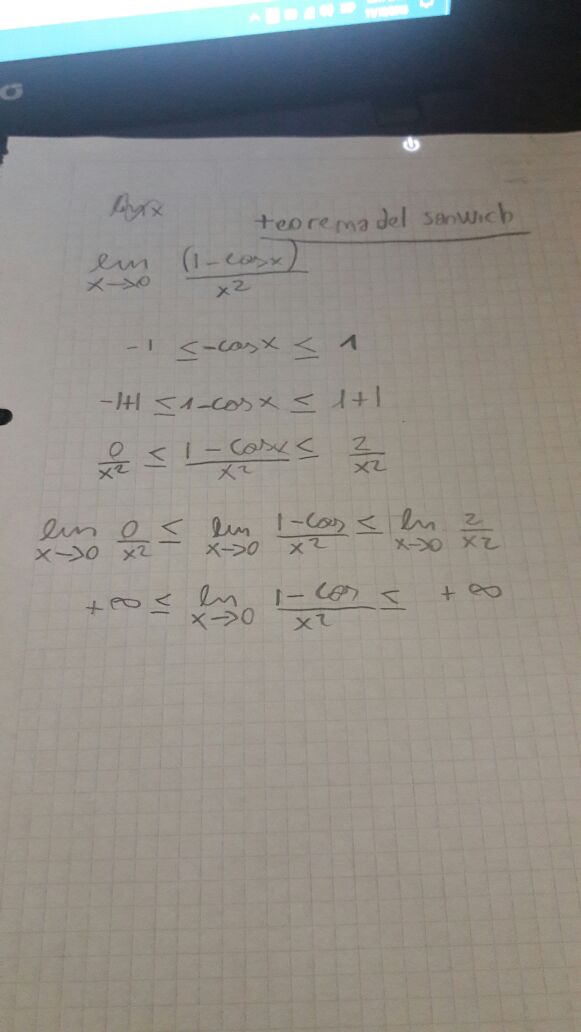 teorema del sanwich
lim x→0 (1-cosx)/x²
-1 ≤ -cosx ≤ 1
-1+1 ≤ 1-cosx ≤ 1+1
0/x² ≤ (1-cosx)/x² ≤ 2/x²
lim x→0 0/x² ≤ lim x→0 (1-cos)/x² ≤ lim x→0 2/x²
+∞ ≤ lim x→0 (1-cos)/x² ≤ +∞